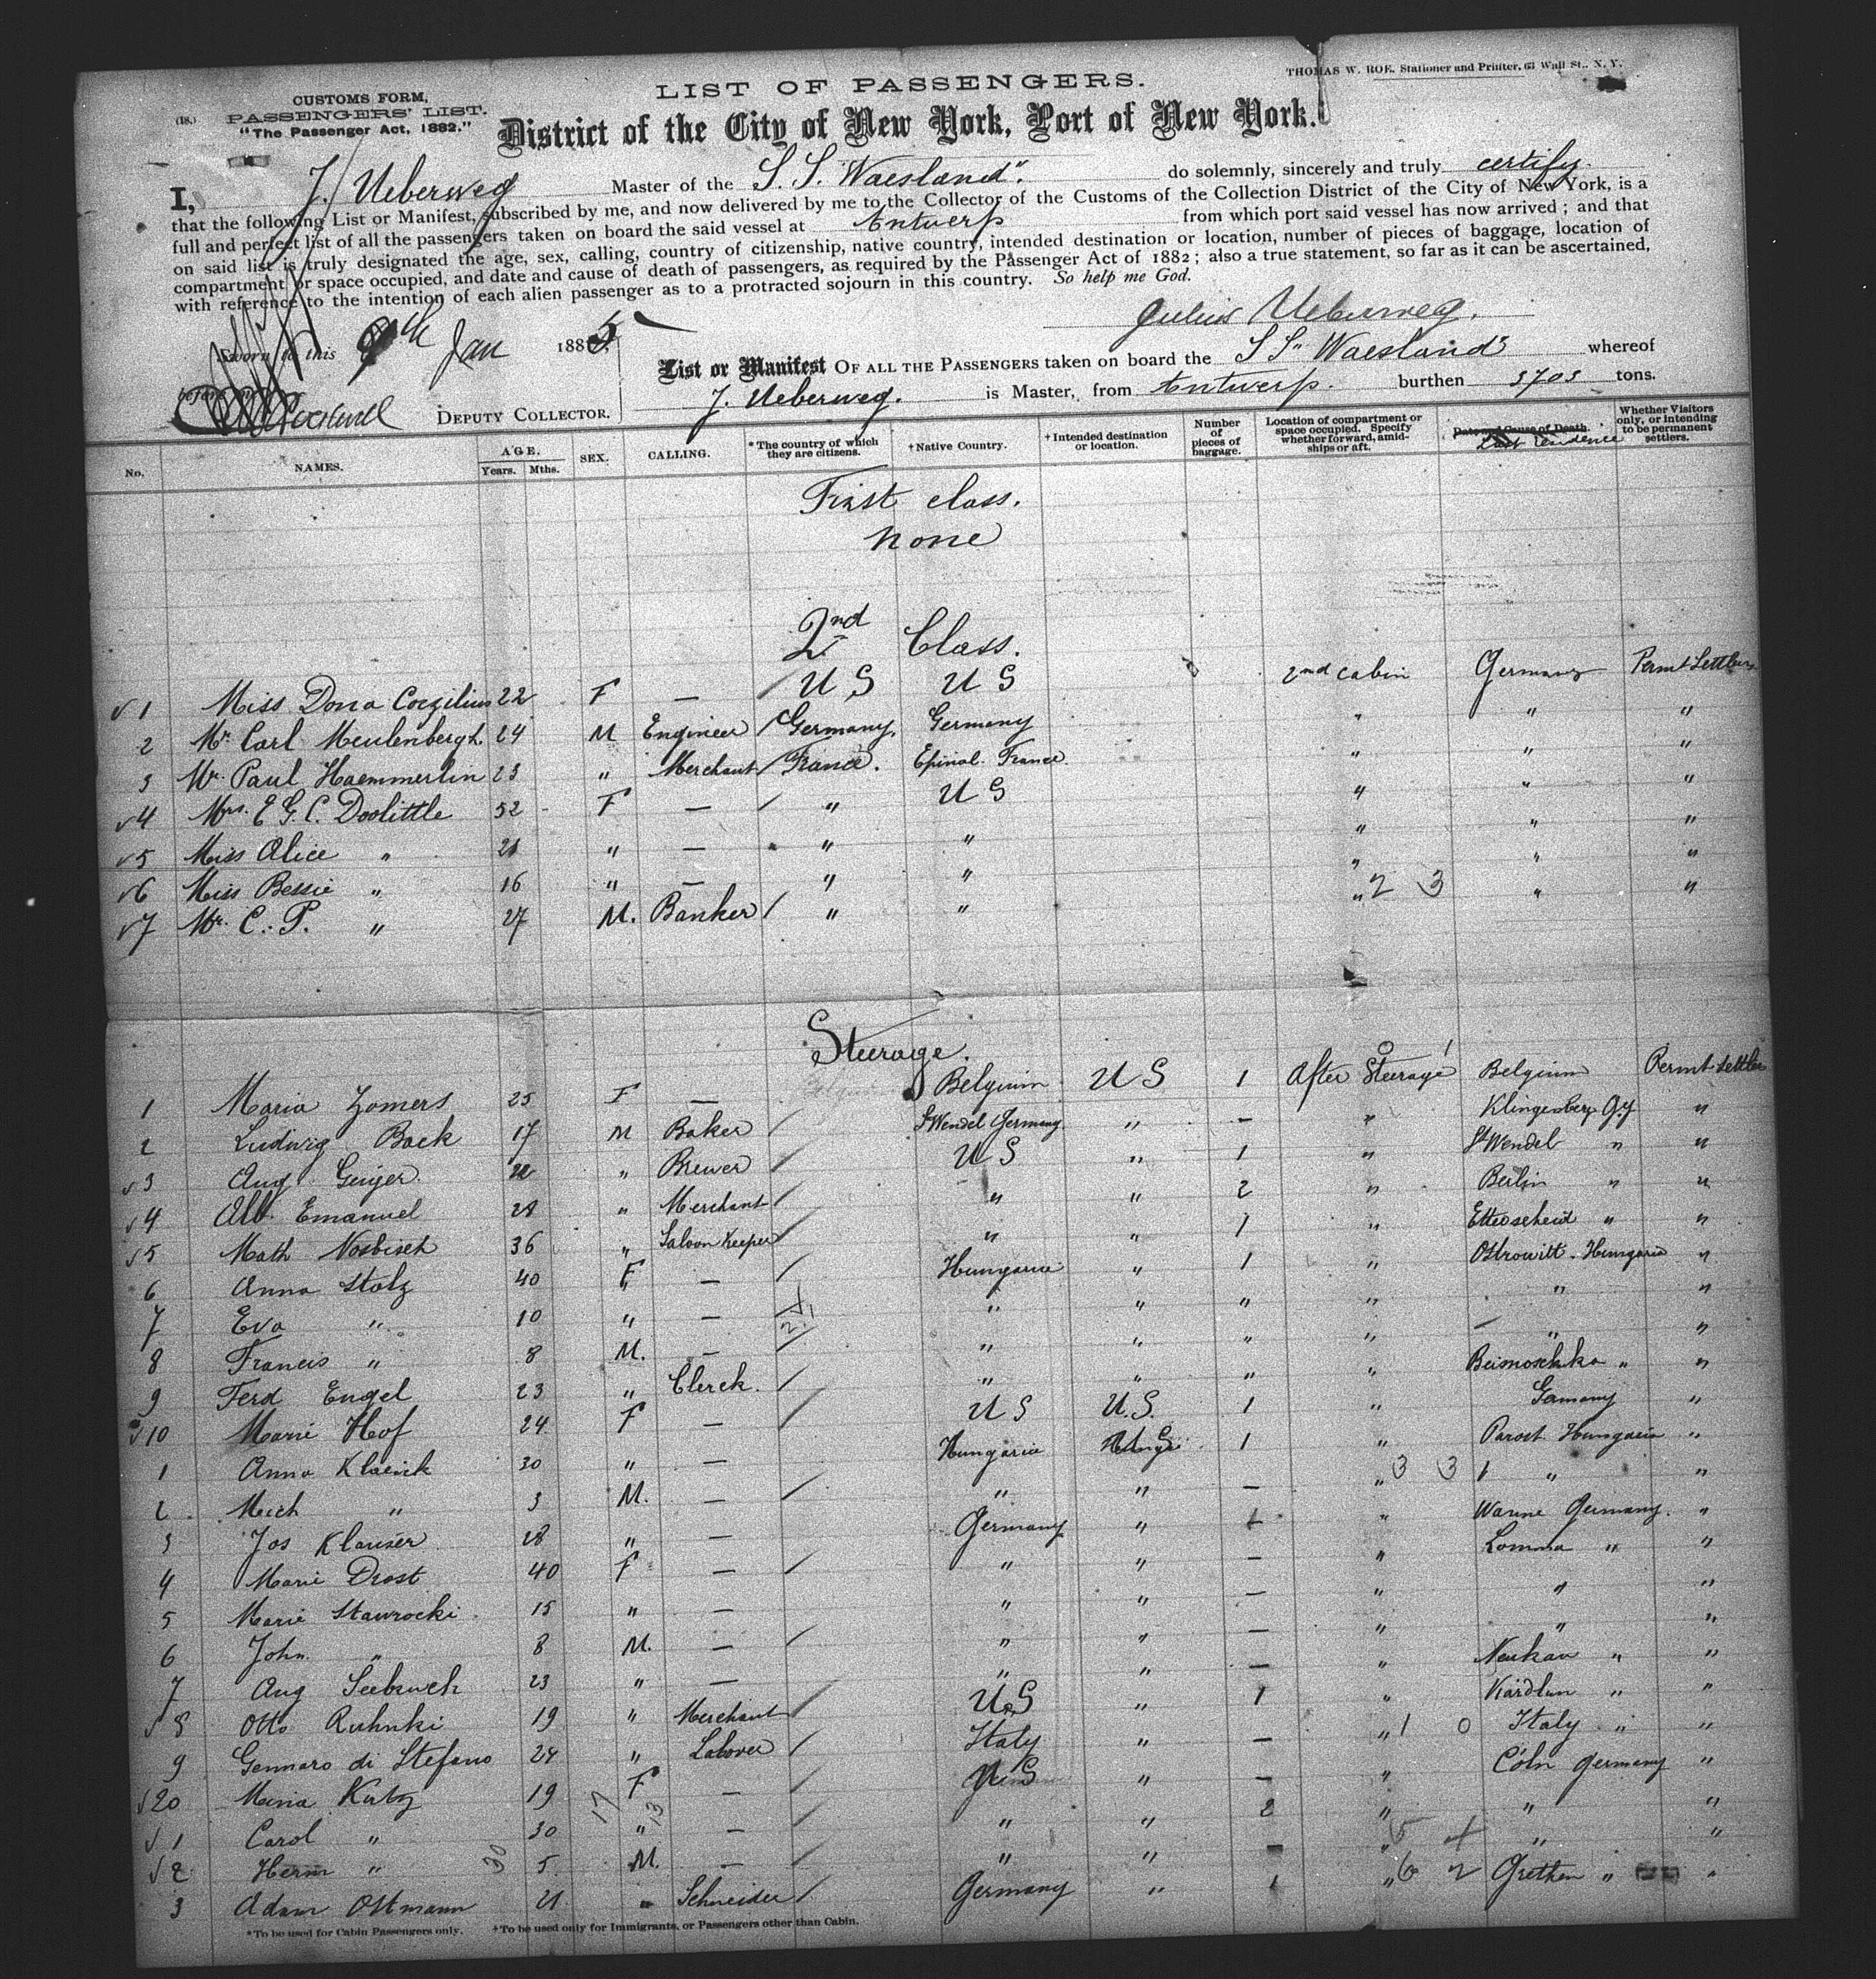 LIST OF PASSENGERS.
THOMAS W. ROE, Stationer and Printer, 63 Wall St., N. Y.
(18.) CUSTOMS FORM,
PASSENGERS' LIST.
"The Passenger Act, 1882."
District of the City of New York, Port of New York.
I, J. Ueberweg Master of the S. S. "Waesland". do solemnly, sincerely and truly certify
that the following List or Manifest, subscribed by me, and now delivered by me to the Collector of the Customs of the Collection District of the City of New York, is a
full and perfect list of all the passengers taken on board the said vessel at Antwerp from which port said vessel has now arrived; and that
on said list is truly designated the age, sex, calling, country of citizenship, native country, intended destination or location, number of pieces of baggage, location of
compartment or space occupied, and date and cause of death of passengers, as required by the Passenger Act of 1882; also a true statement, so far as it can be ascertained,
with reference to the intention of each alien passenger as to a protracted sojourn in this country. So help me God.
Julius Ueberweg.
Sworn to this 9th Jan 1885
before me
DEPUTY COLLECTOR.
List or Manifest OF ALL THE PASSENGERS taken on board the S S "Waesland" whereof
J. Ueberweg. is Master, from Antwerp. burthen 3703 tons.
No. NAMES. AGE. Years. Mths. SEX. CALLING. *The country of which they are citizens. †Native Country. †Intended destination or location. Number of pieces of baggage. Location of compartment or space occupied. Specify whether forward, amidships or aft. Date and Cause of Death. Last residence Whether Visitors only, or intending to be permanent settlers.
First class.
none
2nd Class.
1 Miss Dora 22 F — U S U S 2nd cabin Germany Permt Settlers
2 Mr. Carl Meulenbergh 24 M Engineer Germany, Germany " " "
3 Mr. Paul Haemmerlin 23 " Merchant France. Epinal France " " "
4 Mrs. E. G. C. Doolittle 52 F — " U S " " "
5 Miss Alice " 21 " — " " " " "
6 Miss Bessie " 16 " — " " " " "
7 Mr. C. P. " 27 M. Banker " " " 2 3 " "
Steerage.
1 Maria Zomers 25 F — Belgium U S 1 After Steerage Belgium Permt Settler
2 Ludwig Back 17 M Baker St Wendel Germany " — " Klingenberg Gy "
3 Aug Geiger 22 " Brewer U S " 1 " St Wendel " "
4 Alb. Emanuel 28 " Merchant " " 2 " Berlin " "
5 Math Nosbisch 36 " Saloon Keeper " " 1 " "  "
6 Anna Stolz 40 F — Hungaria " 1 " Hungaria "
7 Eva " 10 " — " " " " " "
8 Francis " 8 M. — " " " " " "
9 Ferd Engel 23 " Clerck. " " " " "  "
10 Marie Hof 24 F — U S U.S. 1 " Germany "
1 Anna 30 " — Hungaria 1 " Hungaria "
2 Mich " 3 M. — " " — " 3 3 " "
3 Jos Klauser 28 " — Germany " " Germany. "
4 Marie Drost 40 F — " " — " "  "
5 Marie Stawrocki 15 " — " " — " " "
6 John " 8 M. — " " — " " "
7 Aug 23 " — " " — " Neukau " "
8 Otto Ruhnki 19 " Merchant U S " 1 " "  "
9 Gennaro di Stefano 24 " Labover Italy " — " 1 0 Italy " "
20 Maria Katz 19 F — U S " — " Cöln Germany "
1 Carol " 30 " — " " 2 " " "
2 Herm " 5 M. — " " — " 5 4 " "
3 Adam Ottmann " Schneider Germany " 1 " 6 2 Grethen " "
*To be used for Cabin Passengers only. †To be used only for Immigrants, or Passengers other than Cabin.